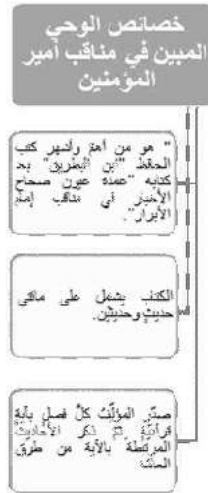 خصائص الوحي
المبين في مناقب أمير
المؤمنين
" هو من أهم وأشهر كتب
الحافظ "ابن البطريق" بعد
كتابه "عمدة عيون صحاح
الأخبار في مناقب إمام
الأبرار".
الكتاب يشمل على مائتي
حديث وحديثين.
صدّر المؤلِّف كلّ فصل بآية
قرآنيّة ثمّ ذكر الأحاديث
المرتبطة بالآية من طرق